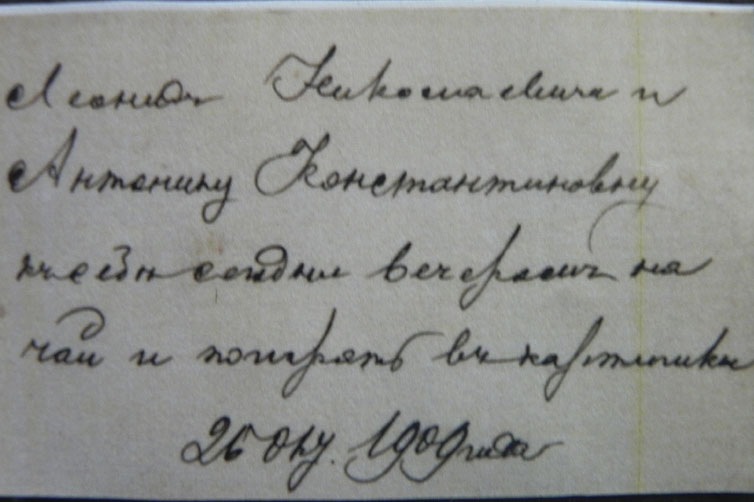 Леонидъ Николаевича и
Антонину Константиновну
къ себѣ сегодня вечеромъ на
чай и поиграть въ картишки
26 Окт. 1909 года